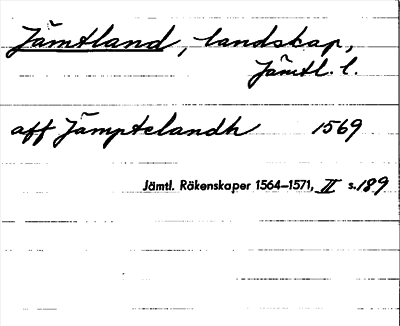 Jämtland, landskap,
Jämtl. l.
aff Jämptelandh 1569
Jämtl. Räkenskaper 1564–1571, II s.189